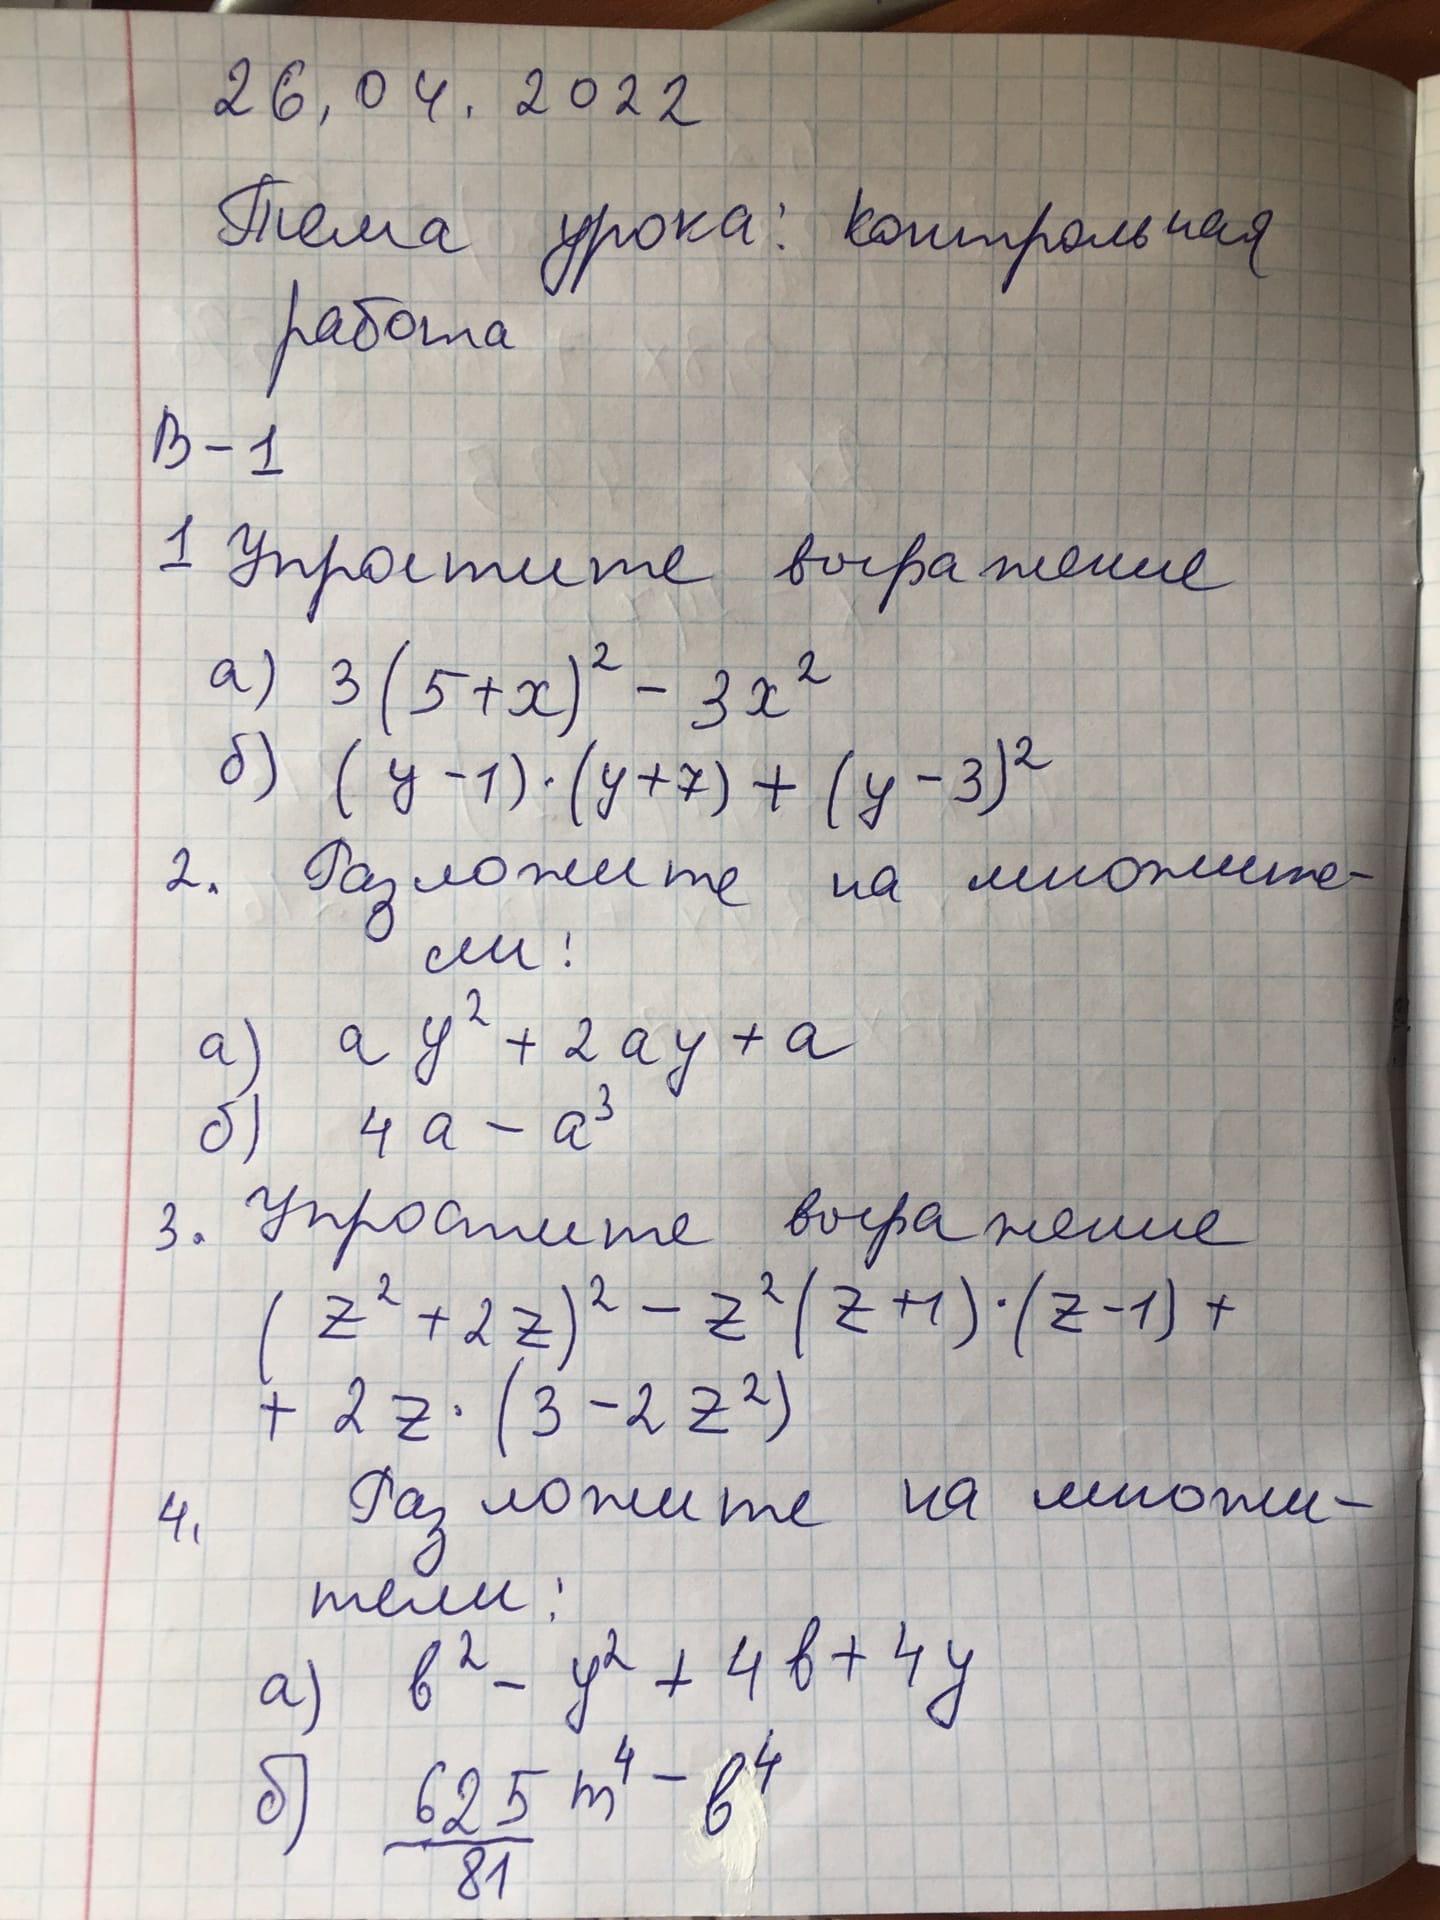 26,04.2022
Тема урока: контрольная
работа
В-1
1 Упростите выражение
а) 3(5+x)² - 3x²
б) (y-1)·(y+7)+(y-3)²
2. Разложите на множите-
ли:
а) ay²+2ay+a
б) 4a-a³
3. Упростите выражение
(z²+2z)²-z²(z+1)·(z-1)+
+2z·(3-2z²)
4. Разложите на множи-
тели:
а) в²-y²+4в+4y
б) 625/81 m⁴-в⁴